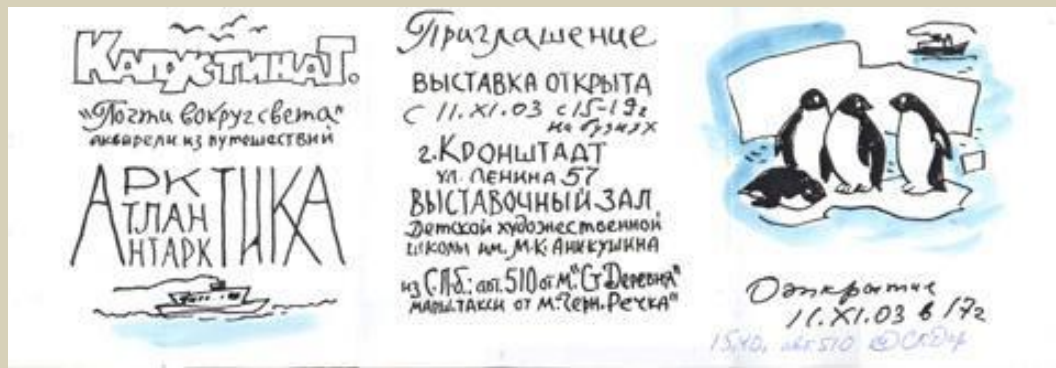 КАПУСТИНА Т.
"Почти вокруг света"
акварели из путешествий
АРКТИКА
АТЛАНТИКА
АНТАРКТИКА
Приглашение
ВЫСТАВКА ОТКРЫТА
С 11.XI.03 с 15-19ч
на буднях
г. КРОНШТАДТ
ул. ЛЕНИНА 57
ВЫСТАВОЧНЫЙ ЗАЛ
Детской художественной
школы им. М.К. АНИКУШИНА
из С.П.б.: авт. 510 от м. "Ст. Деревня"
марш. такси от м. "Черн. Речка"
Открытие
11.XI.03 в 17ч
15.40, авт. 510